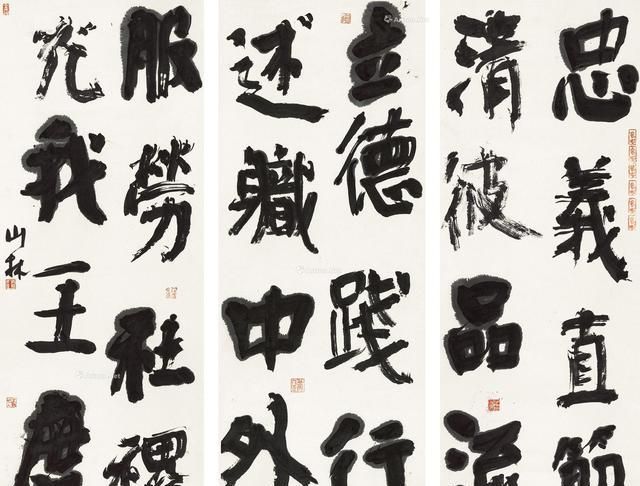 忠義直節
清彼品流
立德踐行
述職中外
服勞社稷
光我王
山林